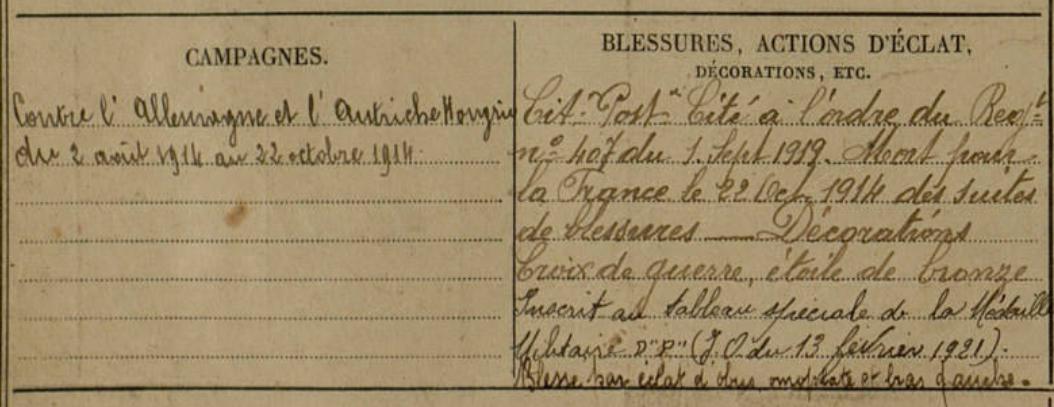 CAMPAGNES.
Contre l'Allemagne et l'Autriche Hongrie
du 2 août 1914 au 22 octobre 1914.
BLESSURES, ACTIONS D'ÉCLAT,
DÉCORATIONS, ETC.
Cit.on Post. Cité à l'ordre du Reg.t
n.o 407 du 1. Sept 1919. Mort pour
la France le 22 Oct. 1914 des suites
de blessures — Décorations
Croix de guerre, étoile de bronze
Inscrit au tableau spéciale de la Médaille
Militaire (J.O du 13 février 1921).
Blessé par éclat d'obus omoplate et bras gauche.